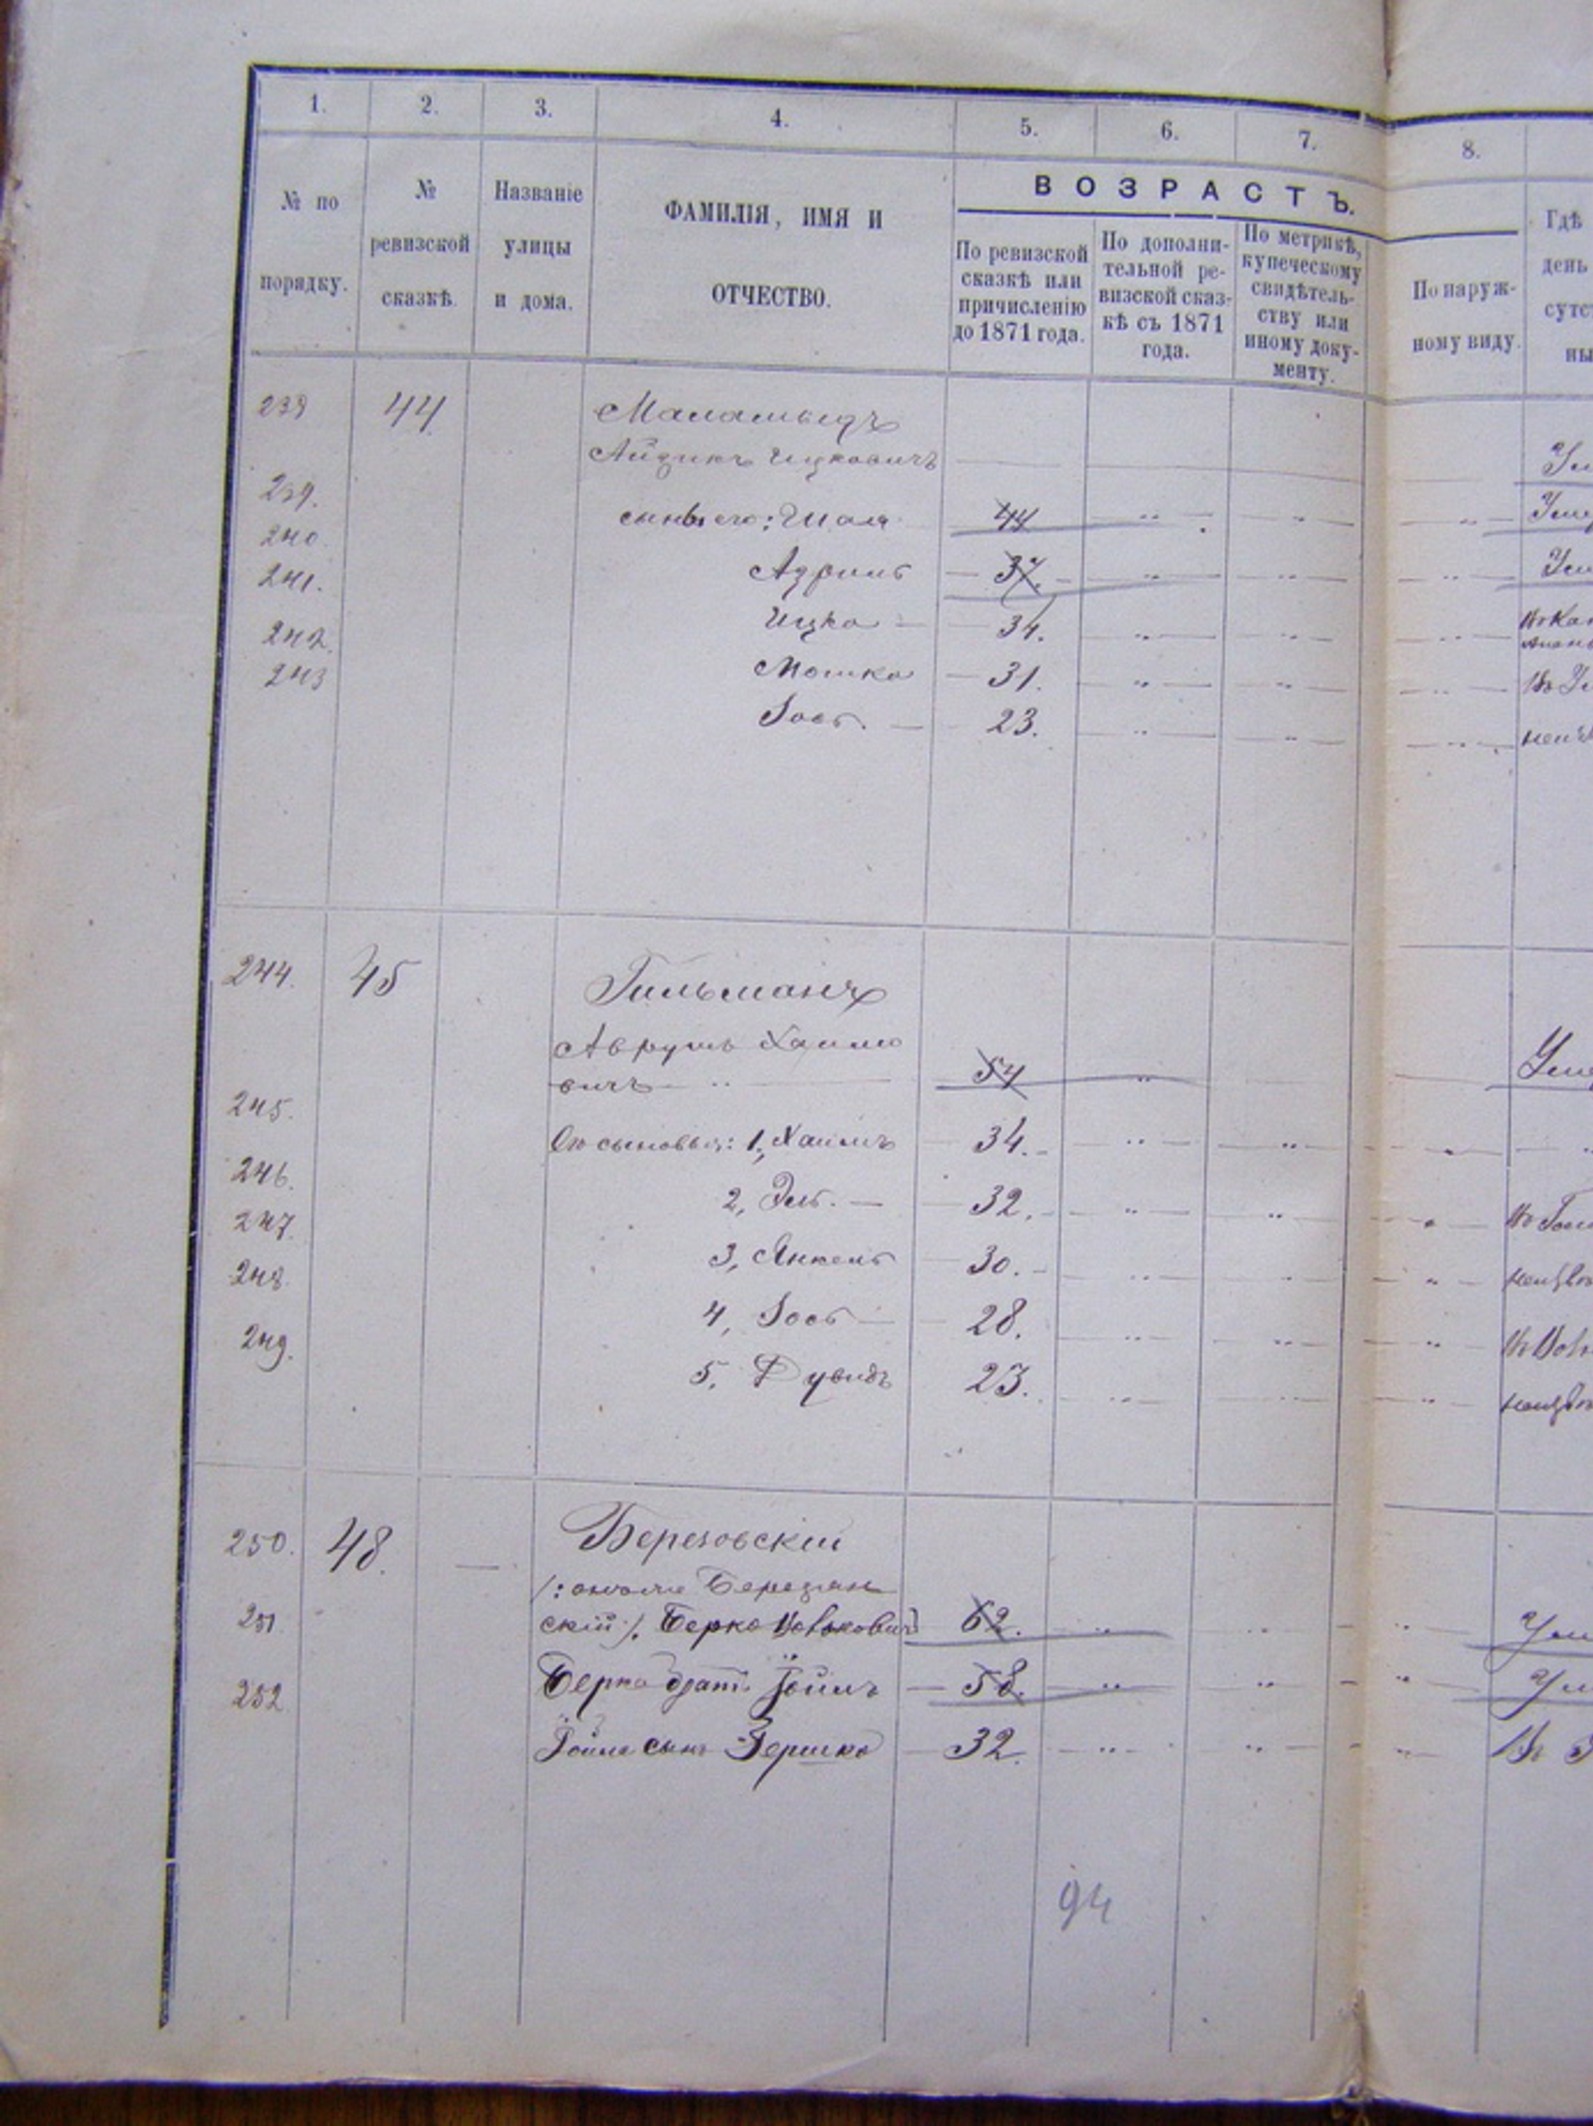 1. 2. 3. 4. 5. 6. 7. 8.
№ по порядку.
№ ревизской сказкѣ.
Названіе улицы и дома.
ФАМИЛІЯ, ИМЯ И
ОТЧЕСТВО.
ВОЗРАСТЪ.
По ревизской
сказкѣ или
причисленію
до 1871 года.
По дополни-
тельной ре-
визской сказ-
кѣ съ 1871
года.
По метрикѣ,
купеческому
свидѣтель-
ству или
иному доку-
менту.
По наруж-
ному виду.
Гдѣ
день
44 Маламыдъ
Айзикъ Ицковичъ
239. сынъ его: Шая 44
240. 37.
241. Ицко 34.
242. Мошко 31.
243 Іось. 23.
244. 45 Гильманъ
Аврумъ Хаимо
вичъ 54
245. Его сыновья: 1, Хаимъ 34.
246. 2, Эль. 32.
247. 3, Янкель 30.
248. 4, Іось 28.
249. 5, Дувидъ 23.
250. 48. Березовскій
/: онъ же Березан
251. скій :/. Берко Вольковичъ 62.
252 Берка братъ Іойлъ 58.
Іойла сынъ Гершко 32.
94